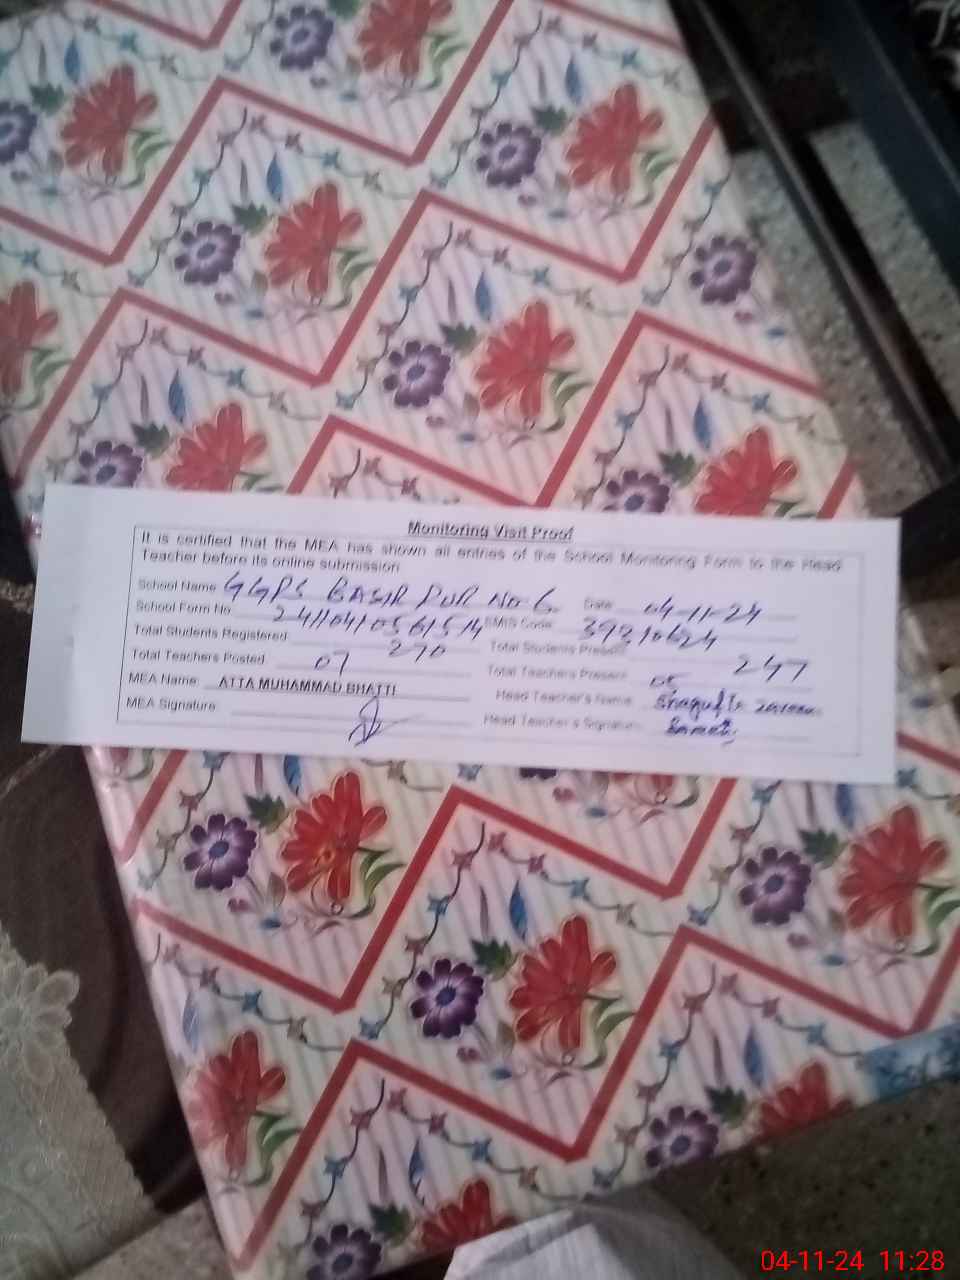 Monitoring Visit Proof
It is certified that the MEA has shown all entries of the School Monitoring Form to the Head
Teacher before its online submission
School Name GGPS BASIR PUR No 6 Date 04-11-24
School Form No. EMIS Code: 39310624
Total Students Registered: 270 Total Students Present: 247
Total Teachers Posted 07 Total Teachers Present 05
MEA Name: ATTA MUHAMMAD BHATTI Head Teacher's Name: Shagufta
MEA Signature: Head Teacher's Signature:
04-11-24 11:28